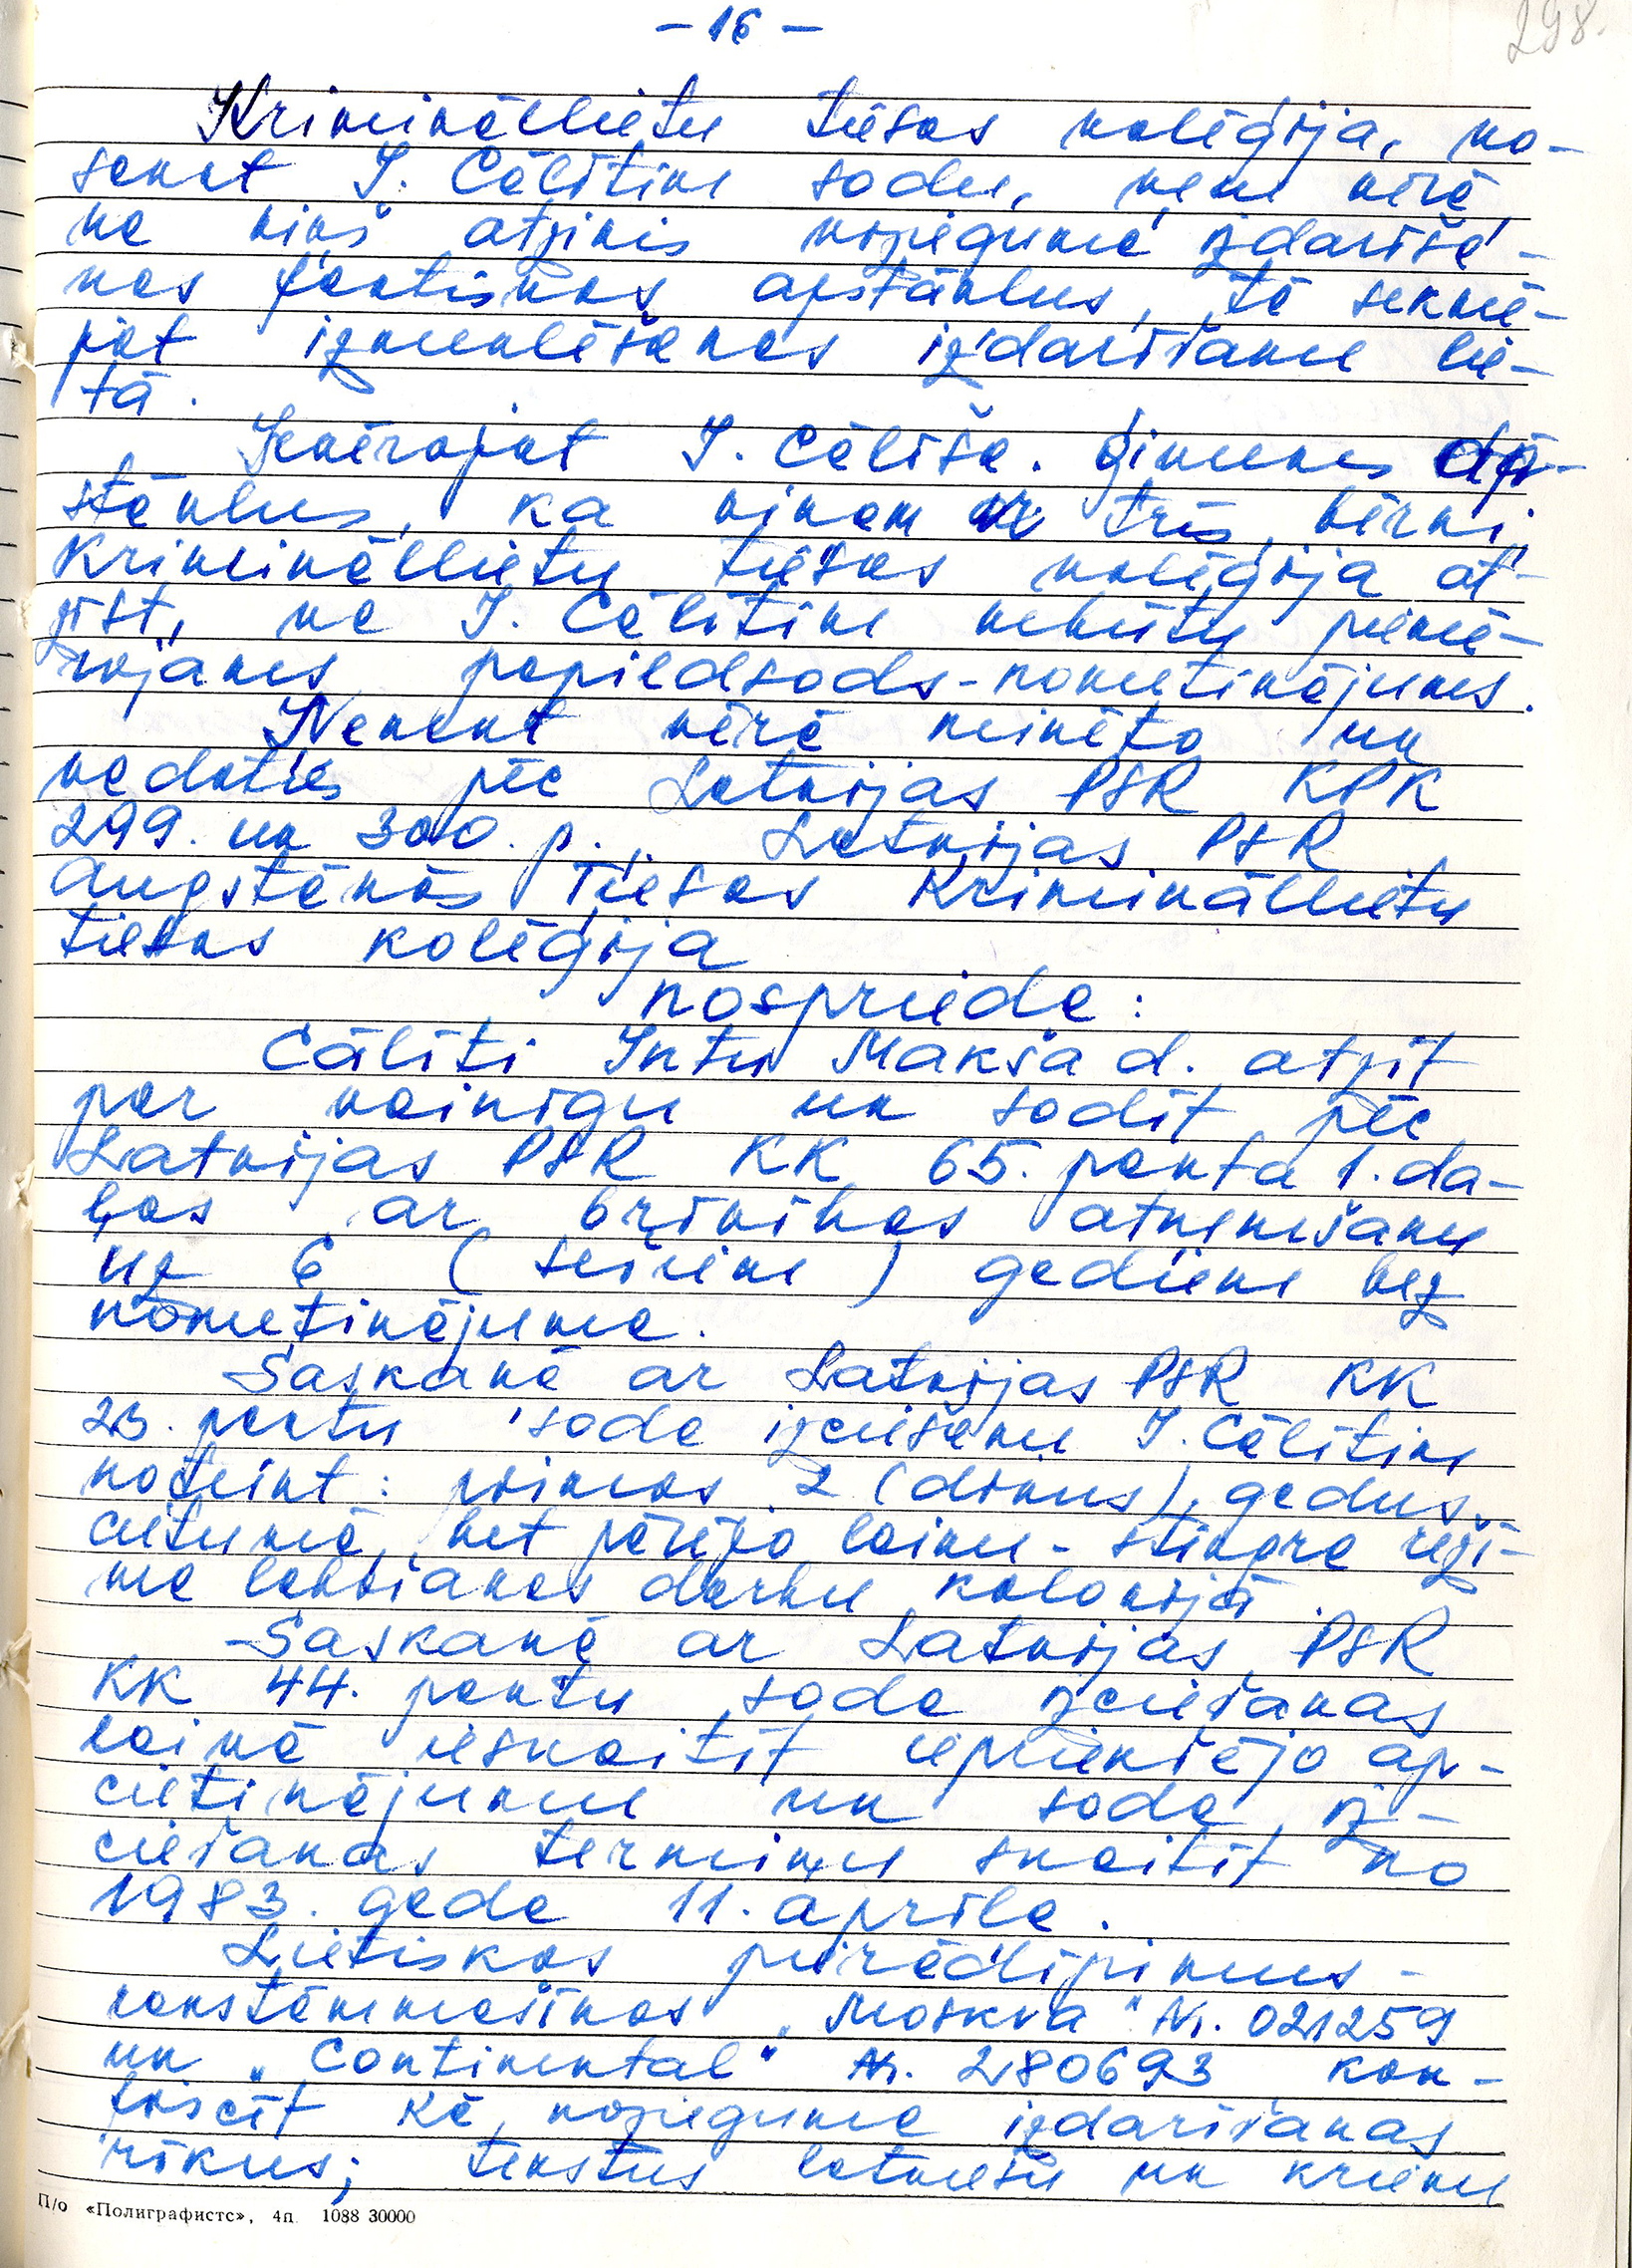 - 16 -
298.
Krimināllietu tiesas kolēģija, no-
sakot I. Cālītim sodu, ņem vērā,
ka viņš atzinis nozieguma izdarīša-
nas faktiskos apstākļus, tā sekmē-
jot izmeklēšanas izdarīšanu lie-
tā.
Ievērojot I. Cālīša ģimenes ap-
stākļus, ka viņam ir trīs bērni,
Krimināllietu tiesas kolēģija at-
zīst, ka I. Cālītim nebūtu piemē-
rojams papildsods - nometinājums.
Ņemot vērā minēto un
vadoties pēc Latvijas PSR KPK
299. un 300. p., Latvijas PSR
Augstākās Tiesas Krimināllietu
tiesas kolēģija
nosprieda:
Cālīti Intu Makša d. atzīt
par vainīgu un sodīt pēc
Latvijas PSR KK 65. panta 1. da-
ļas ar brīvības atņemšanu
uz 6 (sešiem) gadiem bez
nometinājuma.
Saskaņā ar Latvijas PSR KK
23. pantu soda izciešanu I. Cālītim
noteikt: pirmos 2 (divus) gadus
cietumā, bet pārējo laiku - stingra reži-
ma labošanas darbu kolonijā.
Saskaņā ar Latvijas PSR
KK 44. pantu soda izciešanas
laikā ieskaitīt iepriekšējo ap-
cietinājumu un soda iz-
ciešanas termiņu skaitīt no
1983. gada 11. aprīļa.
Lietiskos pierādījumus -
rakstāmmašīnas „Moskva" Nr. 021259
un „Continental" Nr. 280693 kon-
fiscēt kā nozieguma izdarīšanas
rīkus; tekstus latviešu un krievu
П/о «Полиграфистс», 4п 1088 30000